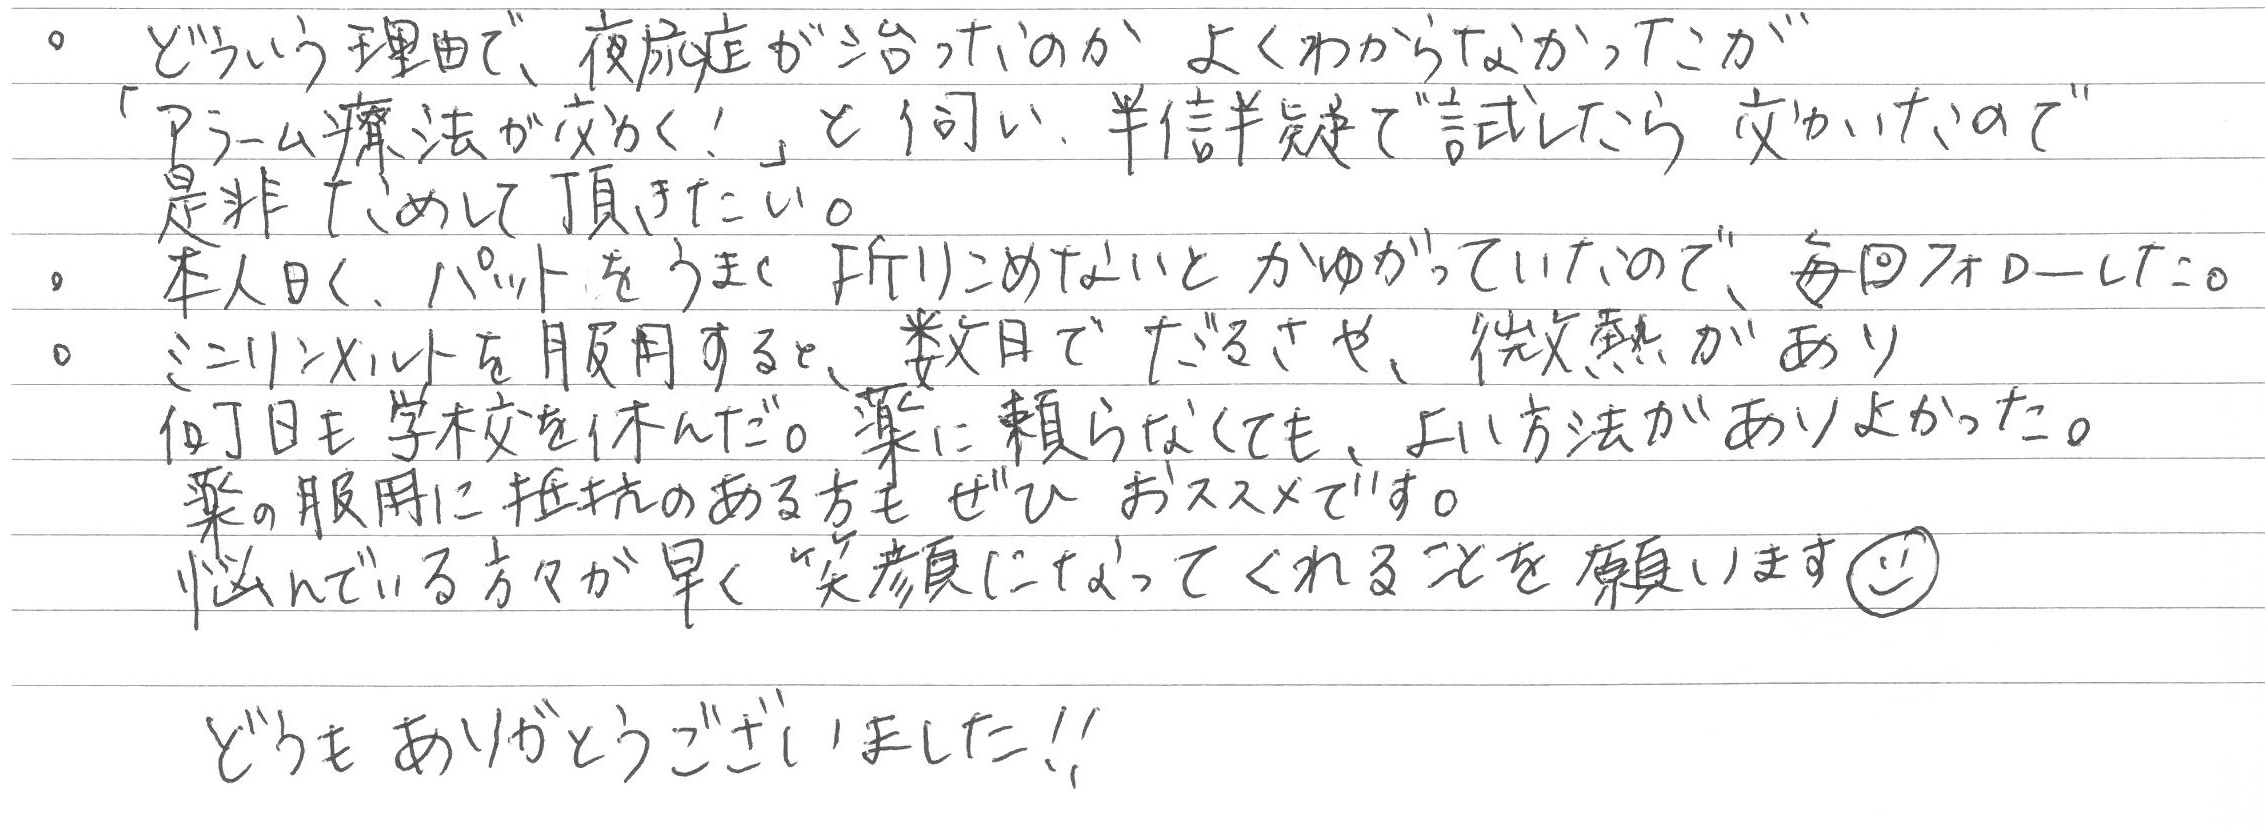 。どういう理由で、夜尿症が治ったのか よくわからなかったが
「アラーム療法が効く!」と伺い、半信半疑で試したら 効いたので
是非 ためして頂きたい。
。本人曰く、パットをうまく 折りこめないと かゆがっていたので、毎回フォローした。
。ミニリンメルトを服用すると、数日で だるさや、微熱があり
何日も学校を休んだ。薬に頼らなくても、よい方法がありよかった。
薬の服用に抵抗のある方も ぜひ おススメです。
悩んでいる方々が早く 笑顔になってくれることを願います☺
どうもありがとうございました!!